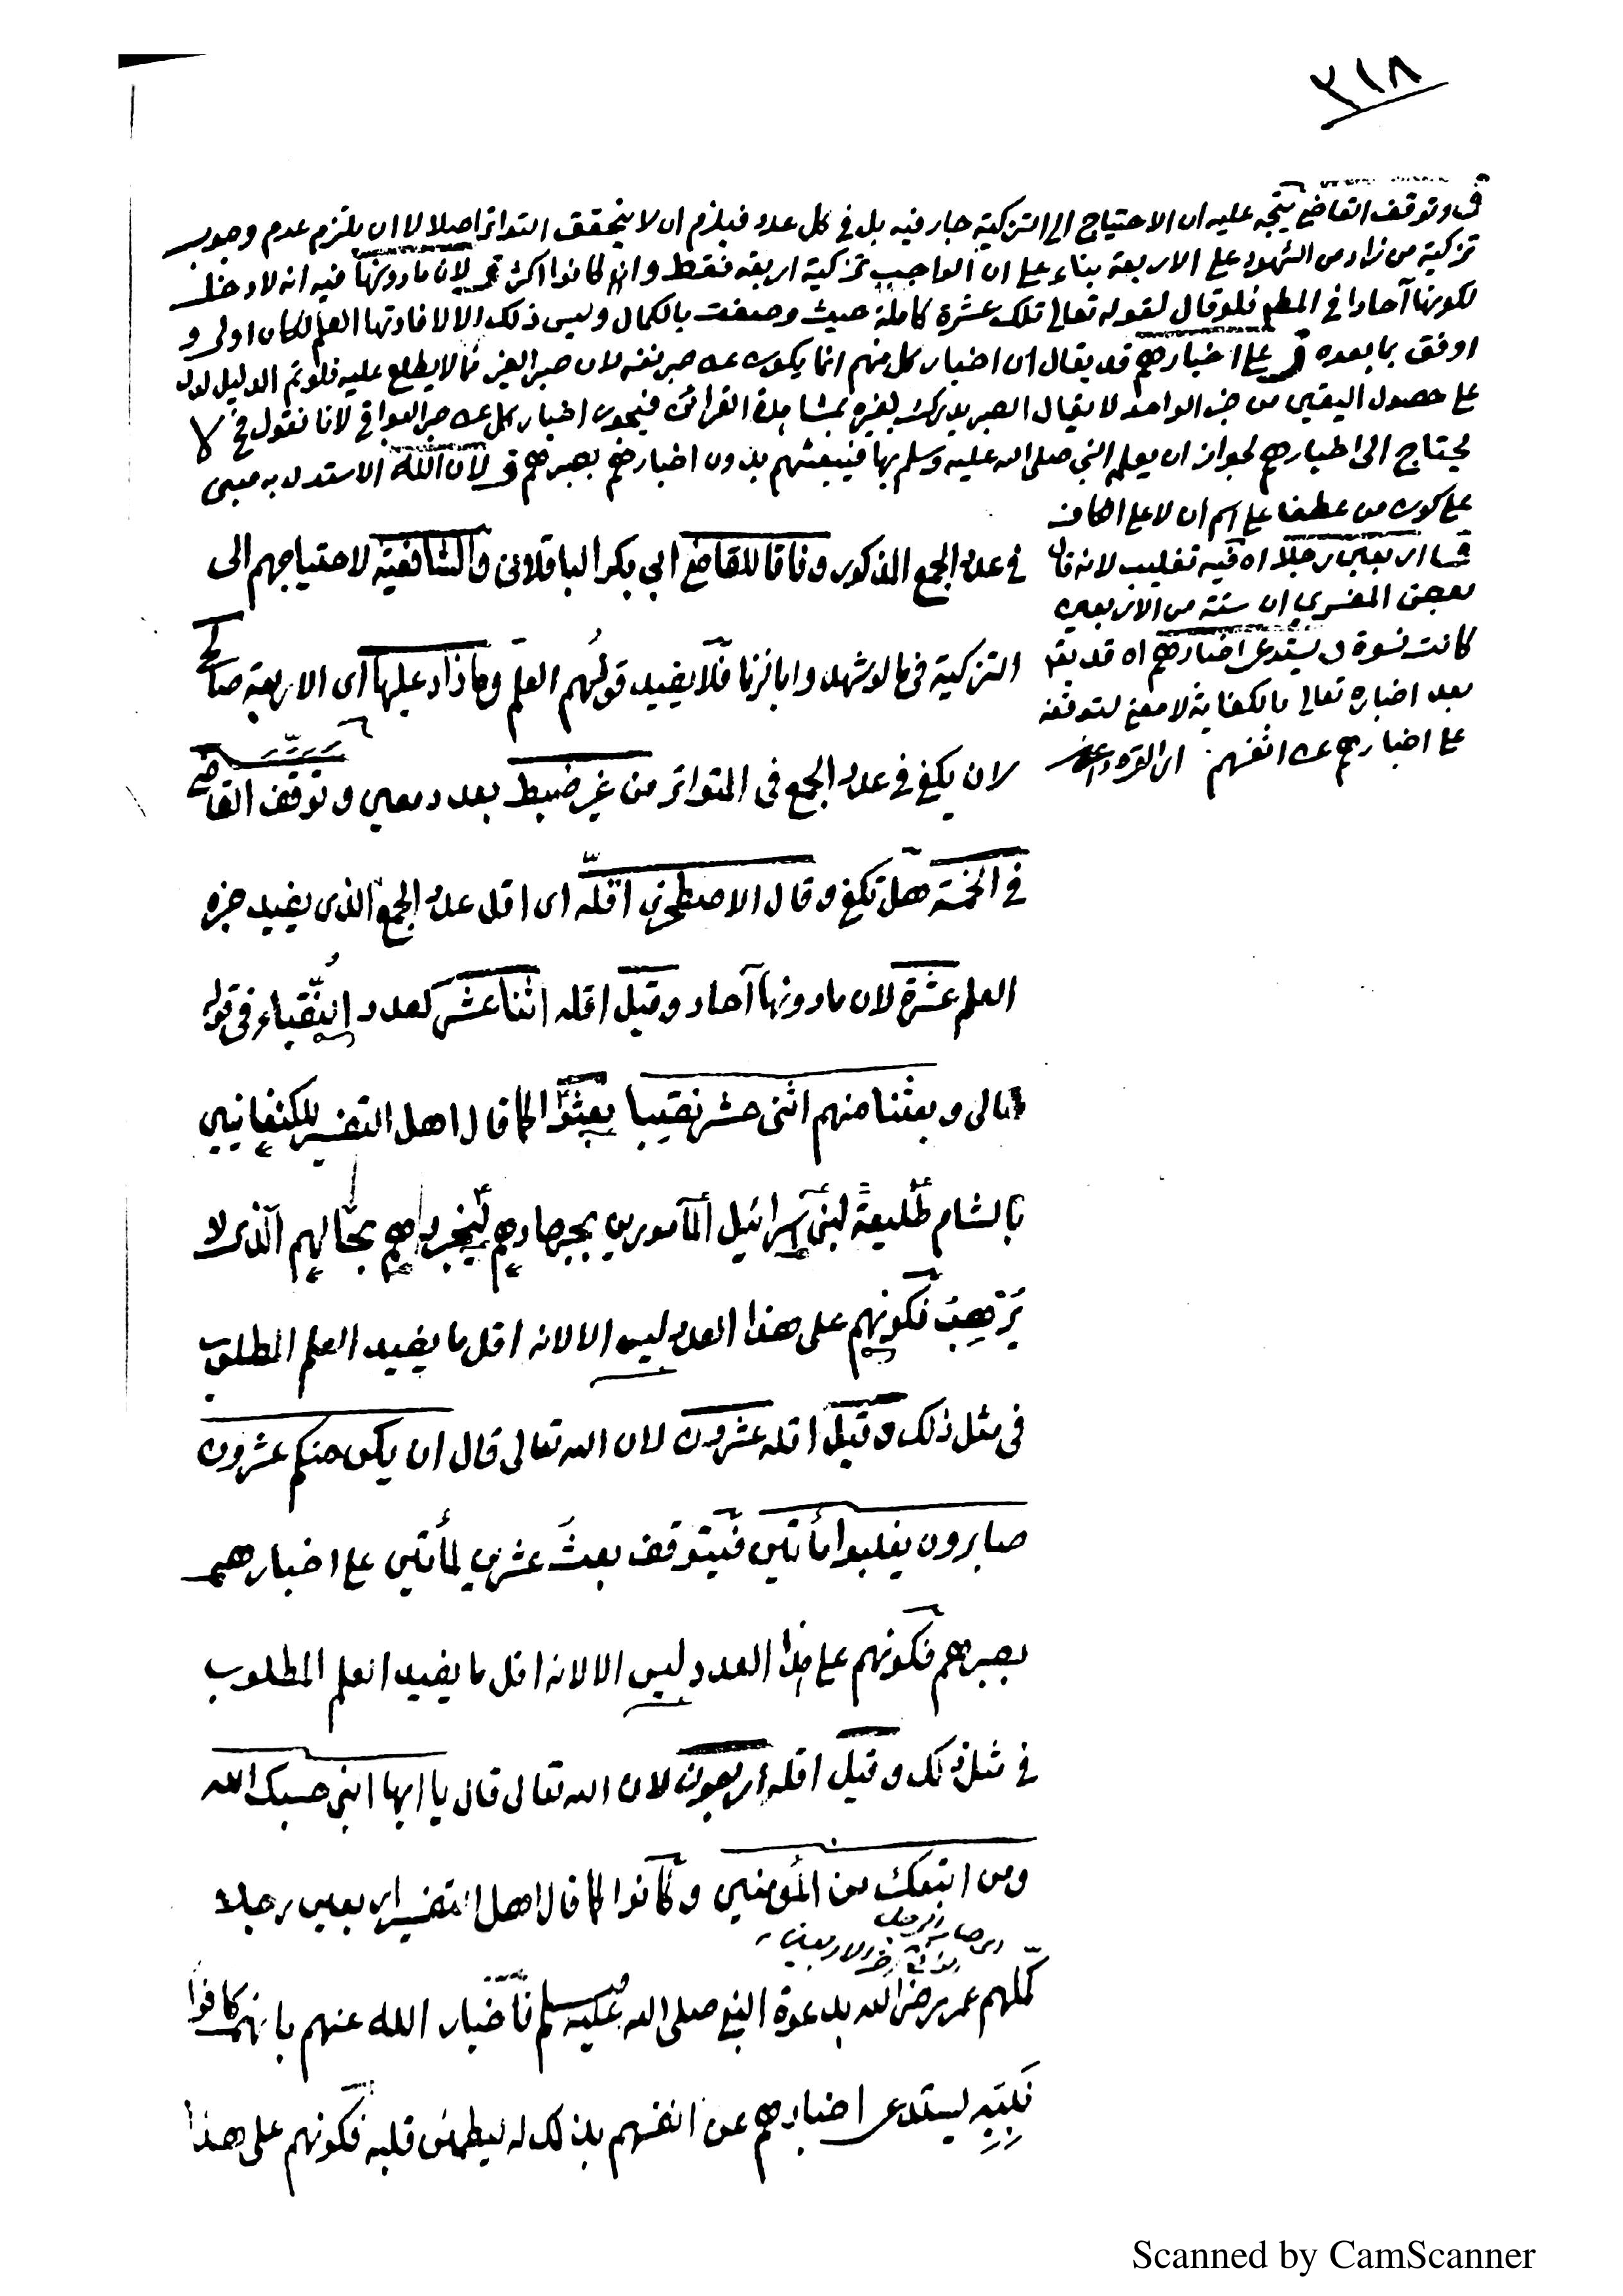 ٣١٨
في وتوقف القاضي يتجه عليه ان الاحتياج الى التزكية جار فيه بل في كل عدد فيلزم ان لا يتحقق التواتر اصلا الا ان يلتزم عدم وجوب
تزكية من زاد من الشهود على الاربعة بناء على ان الواجب تزكية اربعة فقط وان كانوا اكثر لان ما دونها فيه انه لا دخل
لكونها آحادا في المط فلو قال لقوله تعالى تلك عشرة كاملة حيث وصفت بالكمال وليس ذلك الا لافادتها العلم لكان اولى و
اوفق بما بعده على اخبارهم قد يقال ان اخبار كل منهم انما يكون عن صبر نفسه لان صبر الغير مما لا يطلع عليه فلو تم الدليل لدل
على حصول اليقين من خبر الواحد لا يقال الصبر يدرك لغيره بمشاهدة القرائن فيجوز اخبار كل عن صبر البواقي لانا نقول فح لا
يحتاج الى اخبارهم لجواز ان يعلم النبي صلى الله عليه وسلم بها فيبعثهم بدون اخبارهم بصبرهم لان الله الاستدلال به مبني
على كون من عطفا على اسم ان لا على الكاف
اربعين رجلا اه فيه تغليب لانه قال
بعض المفسرين ان ستة من الاربعين
كانت نسوة يستدعى اخبارهم اه قد يقال
بعد اخباره تعالى بالكفاية لا معنى لتوقفه
على اخبارهم عن انفسهم
في عدد الجمع المذكور وفاقا للقاضي ابي بكر الباقلاني والشافعية لاحتياجهم الى
التزكية فيما لو شهدوا بالزنا فلا يفيد قولهم العلم وما زاد عليها اى الاربعة صالح
لان يكفي في عدد الجمع في المتواتر من غير ضبط بعدد معين وتوقف القاضي
في الخمسة هل تكفي وقال الاصطخري اقله اى اقل عدد الجمع الذى يفيد خبره
العلم عشرة لان ما دونها آحاد وقيل اقله اثنا عشر كعدد النقباء في قوله
تعالى وبعثنا منهم اثنى عشر نقيبا بعثوا كما قال اهل التفسير للكنعانيين
بالشام طليعة لبنى اسرائيل المأمورين بجهادهم ليخبروهم بحالهم الذى لا
يرهب فكونهم على هذا العدد ليس الا لانه اقل ما يفيد العلم المطلوب
في مثل ذلك وقيل اقله عشرون لان الله تعالى قال ان يكن منكم عشرون
صابرون يغلبوا مأتين فيتوقف بعث عشرين لمأتين على اخبارهم
بصبرهم فكونهم على هذا العدد ليس الا لانه اقل ما يفيد العلم المطلوب
في مثل ذلك وقيل اقله اربعون لان الله تعالى قال يا ايها النبي حسبك الله
ومن اتبعك من المؤمنين وكانوا كما قال اهل التفسير اربعين رجلا
كملهم عمر رضى الله بدعوة النبي صلى الله عليه وسلم فاخبار الله عنهم بانهم كانوا
نبيه يستدعى اخبارهم عن انفسهم بذلك له ليطمئن قلبه فكونهم على هذا
Scanned by CamScanner